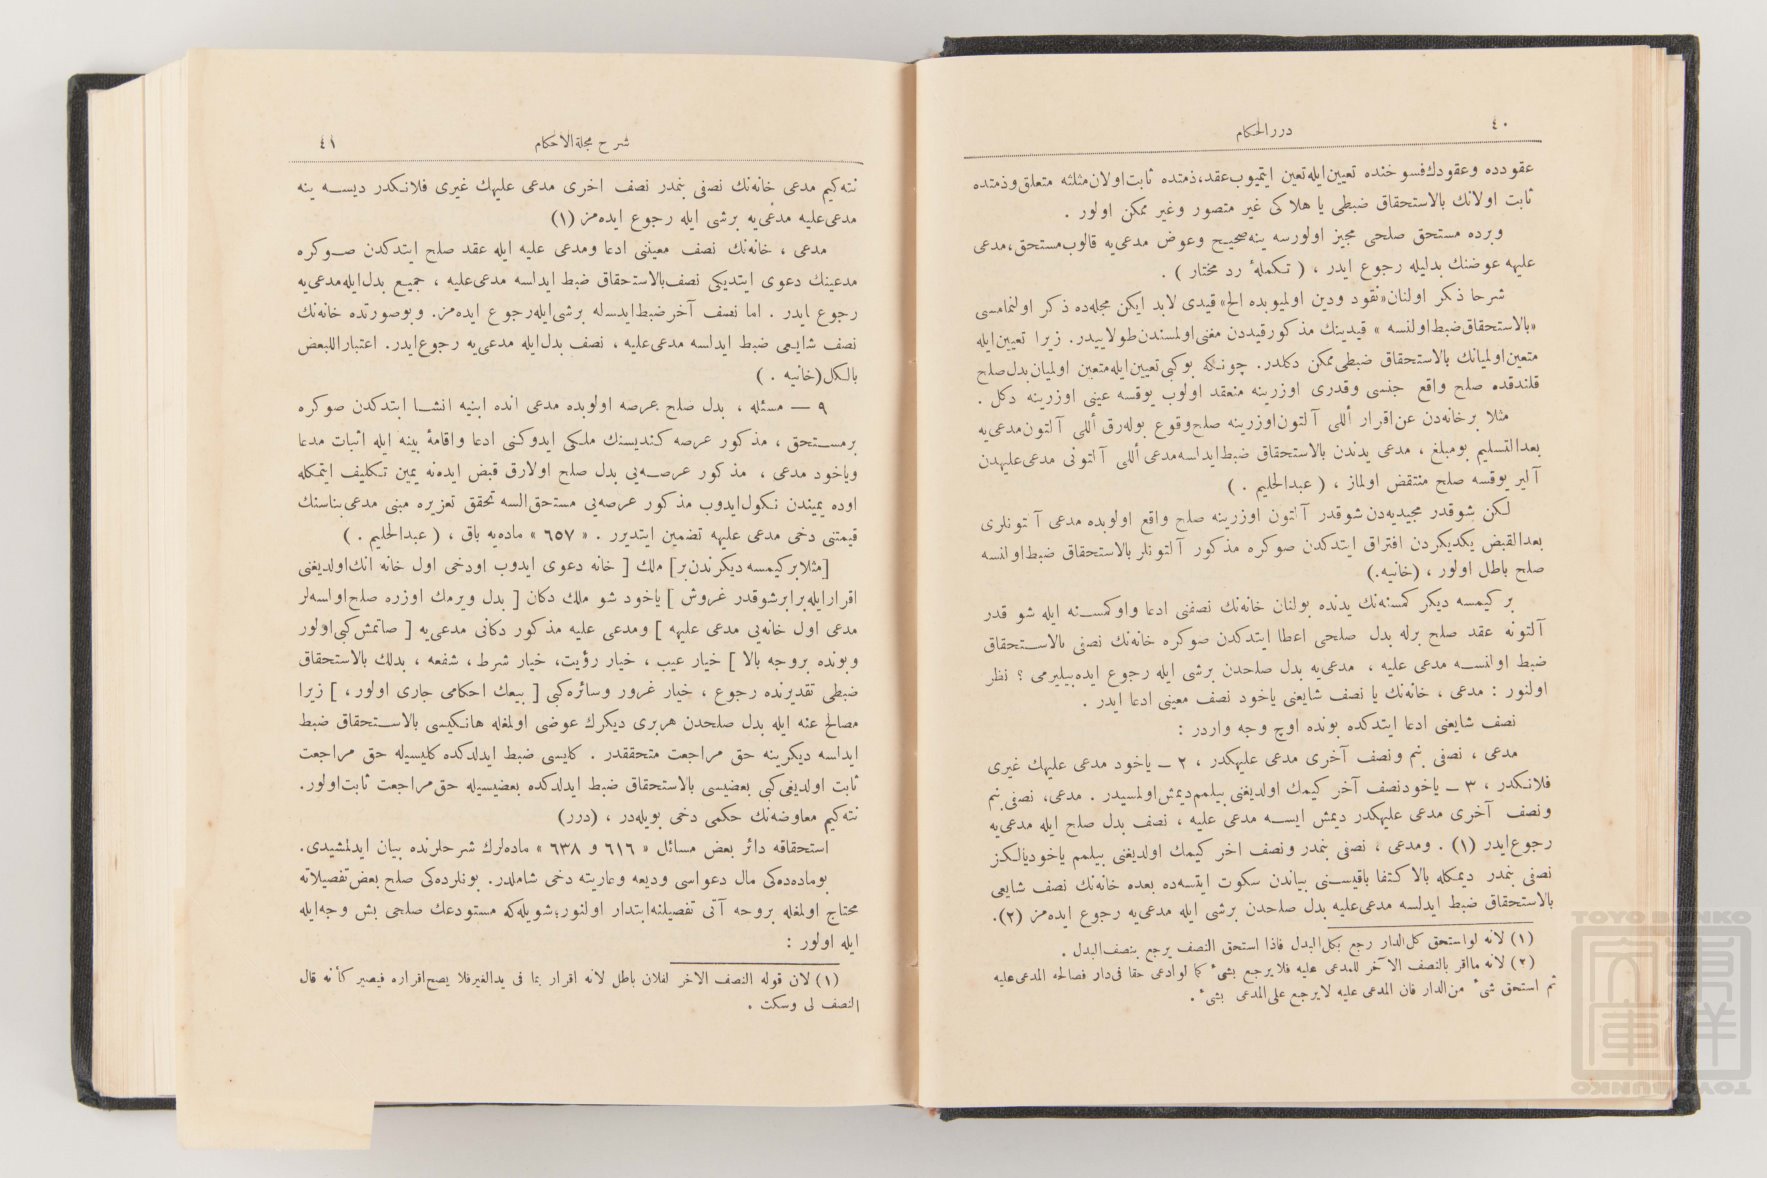 ٤٠
دررالحكام
عقودده وعقودك فسوخنده تعيين ايله تعين ايتميوب عقد، ذمتده ثابت اولان مثلنه متعلق وذمتده
ثابت اولانك بالاستحقاق ضبطى يا هلاكى غير متصور وغير ممكن اولور .
وبرده مستحق صلحى مجيز اولورسه ينه صحيح وعوض مدعى‌يه قالوب مستحق، مدعى
عليهه عوضنك بدليله رجوع ايدر ، ( تكملهٔ رد مختار ) .
شرحا ذكر اولنان «نقود ودين اولميوبده الخ» قيدى لابد ايكن مجله‌ده ذكر اولنمامسى
«بالاستحقاق ضبط اولنسه » قيدينك مذكور قيددن مغنى اولمسندن طولاييدر. زيرا تعيين ايله
متعين اولميانك بالاستحقاق ضبطى ممكن دكلدر. چونكه بوكبى تعيين ايله متعين اولميان بدل صلح
قلندقده صلح واقع جنسى وقدرى اوزرينه منعقد اولوب يوقسه عينى اوزرينه دكل .
مثلا برخانه‌دن عن اقرار أللى آلتون اوزرينه صلح وقوع بوله‌رق أللى آلتون مدعى‌يه
بعدالتسليم بومبلغ ، مدعى يدندن بالاستحقاق ضبط ايدلسه مدعى أللى آلتونى مدعى عليهدن
آلير يوقسه صلح منتقض اولماز ، ( عبدالحليم . )
لكن شوقدر مجيديه‌دن شوقدر آلتون اوزرينه صلح واقع اولوبده مدعى آلتونلرى
بعدالقبض يكديكردن افتراق ايتدكدن صوكره مذكور آلتونلر بالاستحقاق ضبط اولنسه
صلح باطل اولور ، (خانيه.)
بر كيمسه ديكر كمسنه‌نك يدنده بولنان خانه‌نك نصفنى ادعا واوكمسنه ايله شو قدر
آلتونه عقد صلح برله بدل صلحى اعطا ايتدكدن صوكره خانه‌نك نصفى بالاستحقاق
ضبط اولنسه مدعى عليه ، مدعى‌يه بدل صلحدن برشى ايله رجوع ايده‌بيليرمى ؟ نظر
اولنور : مدعى ، خانه‌نك يا نصف شايعنى ياخود نصف معينى ادعا ايدر .
نصف شايعنى ادعا ايتدكده بونده اوچ وجه واردر :
مدعى ، نصفى بنم ونصف آخرى مدعى عليهكدر ، ٢ — ياخود مدعى عليهك غيرى
فلانكدر ، ٣ — ياخود نصف آخر كيمك اولديغنى بيلمم ديمش اولمسيدر . مدعى، نصفى بنم
ونصف آخرى مدعى عليهكدر ديمش ايسه مدعى عليه ، نصف بدل صلح ايله مدعى‌يه
رجوع ايدر (١) . ومدعى ، نصفى بنمدر ونصف اخر كيمك اولديغنى بيلمم ياخود يالكز
نصفى بنمدر ديمكله بالاكتفا باقيسنى بياندن سكوت ايتسه‌ده بعده خانه‌نك نصف شايعى
بالاستحقاق ضبط ايدلسه مدعى عليه بدل صلحدن برشى ايله مدعى‌يه رجوع ايده‌مز (٢).
(١) لانه لواستحق كل الدار رجع بكل البدل فاذا استحق النصف يرجع بنصف البدل .
(٢) لانه مااقر بالنصف الآخر للمدعى عليه فلا يرجع بشىء كما لوادعى حقا فى دار فصالحه المدعى عليه
ثم استحق شىء من الدار فان المدعى عليه لايرجع على المدعى بشىء .
٤١
شرح مجلة الاحكام
نته‌كيم مدعى خانه‌نك نصفى بنمدر نصف اخرى مدعى عليهك غيرى فلانكدر ديسه ينه
مدعى عليه مدعى‌يه برشى ايله رجوع ايده‌مز (١)
مدعى ، خانه‌نك نصف معيننى ادعا ومدعى عليه ايله عقد صلح ايتدكدن صوكره
مدعينك دعوى ايتديكى نصف بالاستحقاق ضبط ايدلسه مدعى عليه ، جميع بدل ايله مدعى‌يه
رجوع ايدر . اما نصف آخر ضبط ايدسله برشى ايله رجوع ايده‌مز. وبوصورتده خانه‌نك
نصف شايعى ضبط ايدلسه مدعى عليه ، نصف بدل ايله مدعى‌يه رجوع ايدر. اعتبارا للبعض
بالكل (خانيه . )
٩ — مسئله ، بدل صلح عرصه اولوبده مدعى انده ابنيه انشا ابتدكدن صوكره
برمستحق ، مذكور عرصه كنديسنك ملكى ايدوكنى ادعا واقامهٔ بينه ايله اثبات مدعا
وياخود مدعى ، مذكور عرصه‌يى بدل صلح اولارق قبض ايده‌نه يمين تكليف ايتمكله
اوده يميندن نكول ايدوب مذكور عرصه‌يى مستحق السه تحقق تعزيره مبنى مدعى بناسنك
قيمتنى دخى مدعى عليهه تضمين ايتديرر . « ٦٥٧ » ماده‌يه باق ، ( عبدالحليم . )
[مثلا بركيمسه ديكرندن بر] ملك [ خانه دعوى ايدوب اودخى اول خانه انك اولديغنى
اقرار ايله برابر شوقدر غروش ] ياخود شو ملك دكان [ بدل ويرمك اوزره صلح اولسه‌لر
مدعى اول خانه‌يى مدعى عليهه ] ومدعى عليه مذكور دكانى مدعى‌يه [ صاتمش كبى اولور
وبونده بروجه بالا ] خيار عيب ، خيار رؤيت، خيار شرط ، شفعه ، بدلك بالاستحقاق
ضبطى تقديرنده رجوع ، خيار غرور وسائره كبى [ بيعك احكامى جارى اولور ، ] زيرا
مصالح عنه ايله بدل صلحدن هربرى ديكرك عوضى اولمغله هانكيسى بالاستحقاق ضبط
ايدلسه ديكرينه حق مراجعت متحققدر . كليسى ضبط ايدلدكده كليسيله حق مراجعت
ثابت اولديغى كبى بعضيسى بالاستحقاق ضبط ايدلدكده بعضيسيله حق مراجعت ثابت اولور.
نته‌كيم معاوضه‌نك حكمى دخى بويله‌در ، (درر)
استحقاقه دائر بعض مسائل « ٦١٦ و ٦٣٨ » ماده‌لرك شرحلرنده بيان ايدلمشيدى.
بوماده‌ده‌كى مال دعواسى وديعه وعاريته دخى شاملدر. بونلرده‌كى صلح بعض تفصيلاته
محتاج اولمغله بروجه آتى تفصيلنه ابتدار اولنور؛ شويله‌كه مستودعك صلحى بش وجه ايله
ايله اولور :
(١) لان قوله النصف الاخر لفلان باطل لانه اقرار بما فى يدالغير فلا يصح اقراره فيصير كأنه قال
النصف لى وسكت .
TOYO BUNKO
東洋文庫
TOYO BUNKO